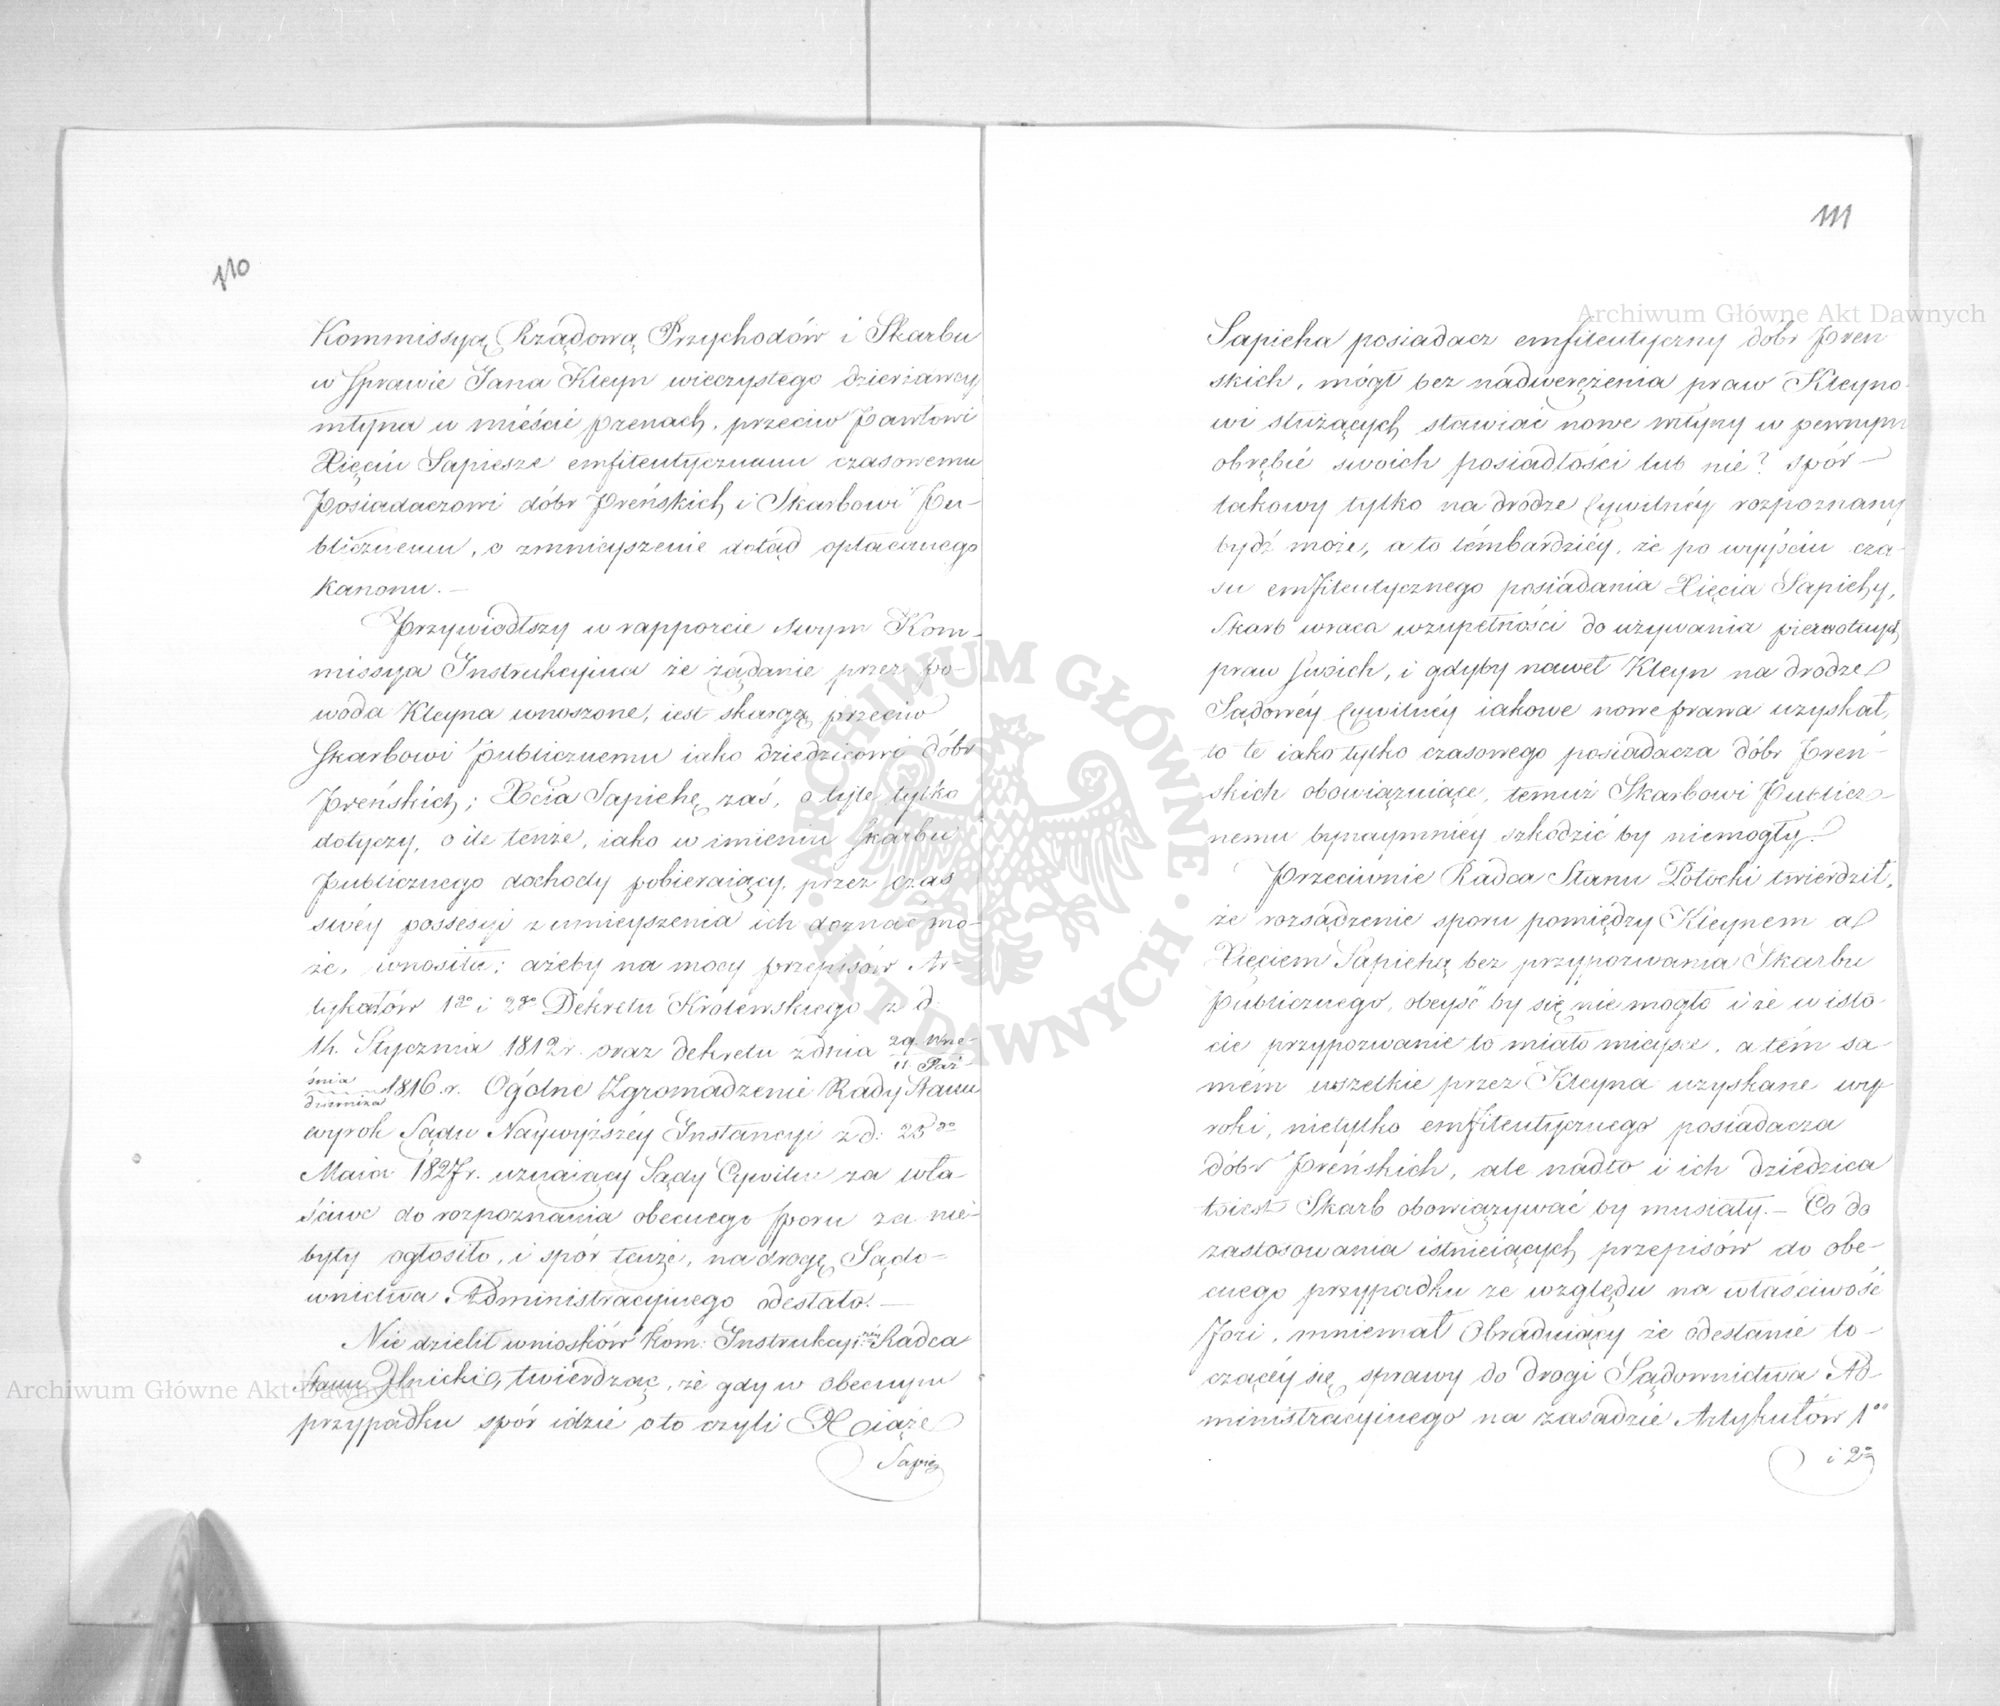 110
Kommissyą Rządową Przychodów i Skarbu
w sprawie Jana Kleyn wieczystego dzierżawcy
młyna w mieście Prenach, przeciw Pawłowi
Xięciu Sapiesze emfiteutycznemu czasowemu
Posiadaczowi dóbr Preńskich i Skarbowi Pu-
blicznemu, o zmnieyszenie dotąd opłacanego
kanonu. —
Przywiodłszy w rapporcie swym Kom-
missya Instrukcyina że żądanie przez po-
woda Kleyna wnoszone, iest skargą przeciw
Skarbowi publicznemu iako dziedzicowi dóbr
Preńskich; Xcia Sapiehę zaś, o tyle tylko
dotyczy, o ile tenże, iako w imieniu Skarbu
Publicznego dochody pobieraiący, przez czas
swéy possessyi zumieyszenia ich doznać mo-
że, wnosiła; ażeby na mocy przepisów Ar-
tykułów 1go i 2go Dekretu Królewskiego z d:
14. Stycznia 1812 r. oraz dekretu z dnia 29. Wrze-
11 Paź-
śnia
dziernika 1816. r. Ogólne Zgromadzenie Rady Stanu
wyrok Sądu Naywyższéy Instancyi z d: 23go
Maia 1827 r. uznaiący Sądy Cywilne za wła-
ściwe do rozpoznania obecnego sporu za nie-
były ogłosiło, i spór tenże, na drogę Sądo-
wnictwa Administracyinego odesłało. —
Nie dzielił wniosków Kom: Instrukcyinéy Radca
Stanu Zbnicki, twierdząc, że gdy w obecnym
przypadku spór idzie o to czyli Xiąże
Sapie
111
Sapieha posiadacz emfiteutyczny dobr Pren
skich, mógł bez nadwerężenia praw Kleyno-
wi służących stawiać nowe młyny w pewnym
obrębie swoich posiadłości lub nie? Spór —
takowy tylko na drodze Cywilnéy rozpoznany
bydź może, a to témbardziéy, że po wyyściu cza-
su emfiteutycznego posiadania Xięcia Sapiehy,
Skarb wraca wzupełności do używania pierwotnych
praw swoich, i gdyby nawet Kleyn na drodze
Sądowéy Cywilnéy iakowe nowe prawa uzyskał,
to te iako tylko czasowego posiadacza dóbr Preń-
skich obowiązuiące, temuż Skarbowi Publicz-
nemu bynaymniéy szkodzić by niemogły.
Przeciwnie Radca Stanu Potocki twierdził,
że rozsądzenie sporu pomiędzy Kleynem a
Xięciem Sapiehą bez przypozwania Skarbu
Publicznego, obeyść by się nie mogło i że w isto-
cie przypozwanie to miało mieysce, a tém sa-
mém wszelkie przez Kleyna uzyskane wy
roki, nietylko emfiteutycznego posiadacza
dóbr Preńskich, ale nadto i ich dziedzica
toiest Skarb obowiązywać by musiały. — Co do
zastosowania istnieiących przepisów do obe-
cnego przypadku ze względu na właściwość
Jori, mniemał Obraduiący że odesłanie to-
czącéy się sprawy do drogi Sądownictwa Ad-
ministracyinego na zasadzie Artykułów 1go
i 2go
Archiwum Główne Akt Dawnych
Archiwum Główne Akt Dawnych
ARCHIWUM GŁÓWNE · AKT DAWNYCH ·